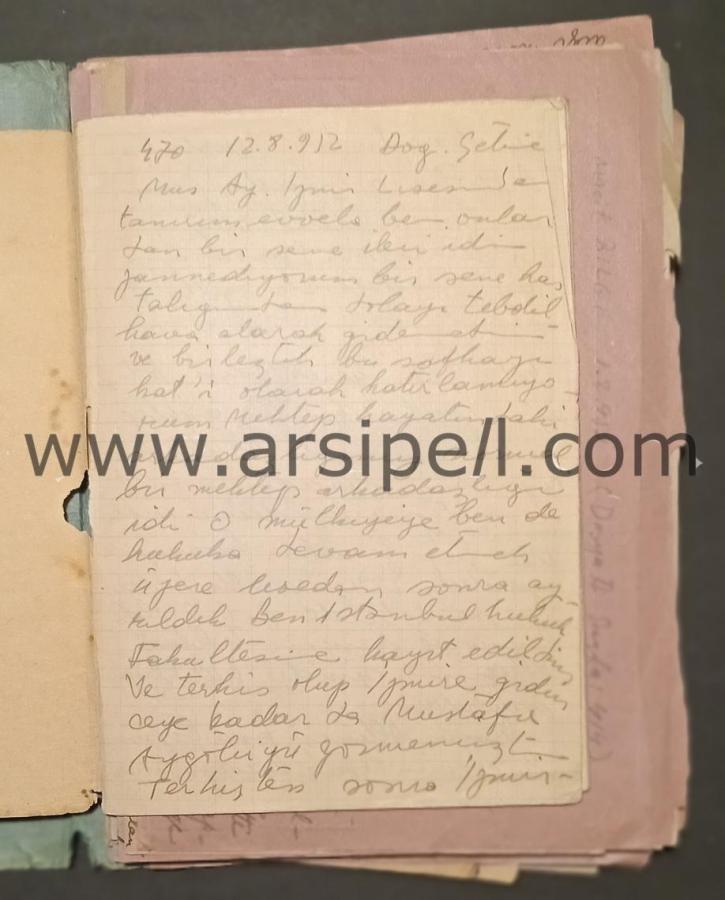 470 12.8.952 Doğ. Çetine
Mus Ay. İzmir Lisesinde
tanırım evvela ben onlar
dan bir sene ileri idim
zannediyorum bir sene has
talığımdan dolayı tebdil
hava alarak
ve birleştik bu safhayı
kat'i olarak hatırlamıyo-
rum Mektep hayatındaki
www.arsipe/l.com
bir mektep arkadaşlığı
idi O mülkiyeye ben de
hukuka devam etmek
üzere liseden sonra ay-
rıldık Ben İstanbul hukuk
Fakültesine kayıt edildim
Ve terhis olup İzmire gidin
ceye kadar da Mustafa
Aygölüyü görmemiştim
Terhisten sonra İzmir-